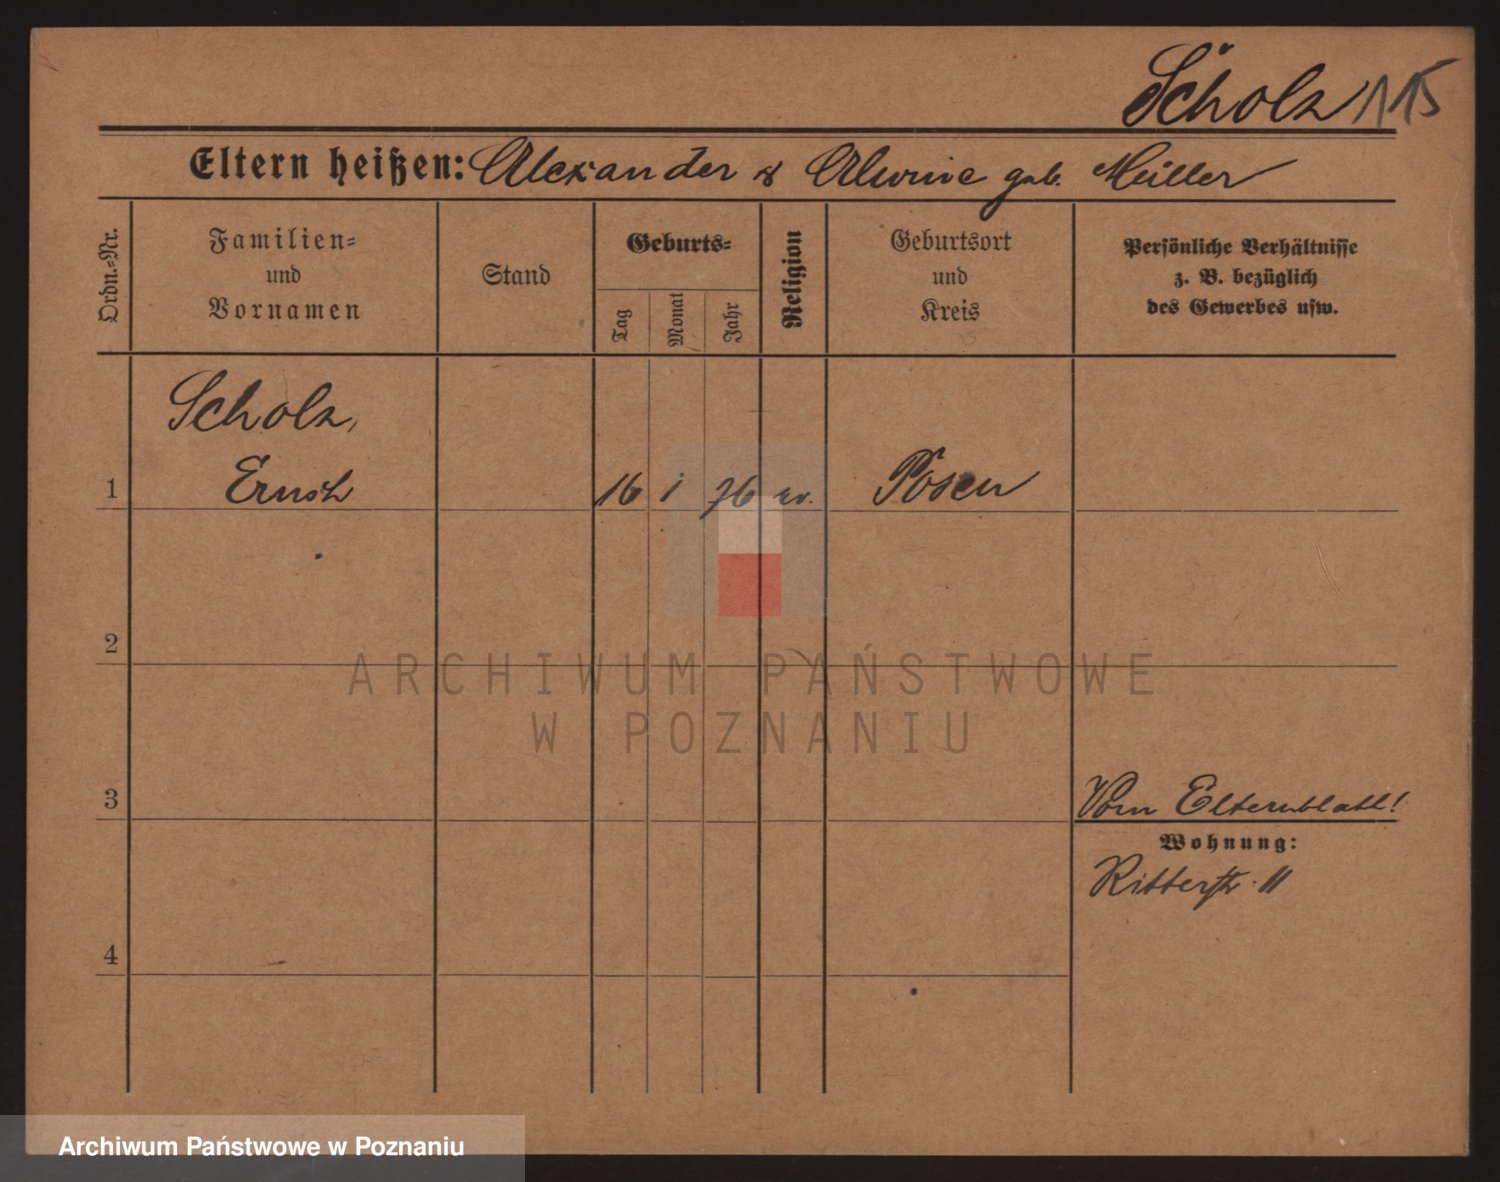 Scholz 115
Eltern heißen: Alexander & Alwine geb. Müller
Ordn.-Nr.
Familien-
und
Vornamen
Stand
Geburts-
Tag
Monat
Jahr
Religion
Geburtsort
und
Kreis
Persönliche Verhältnisse
z. B. bezüglich
des Gewerbes usw.
Scholz,
1 Ernst 16 1 76 ev. Posen
2
ARCHIWUM PAŃSTWOWE
W POZNANIU
3 Vom Elternblatt!
Wohnung:
Ritterstr. 11
4
Archiwum Państwowe w Poznaniu